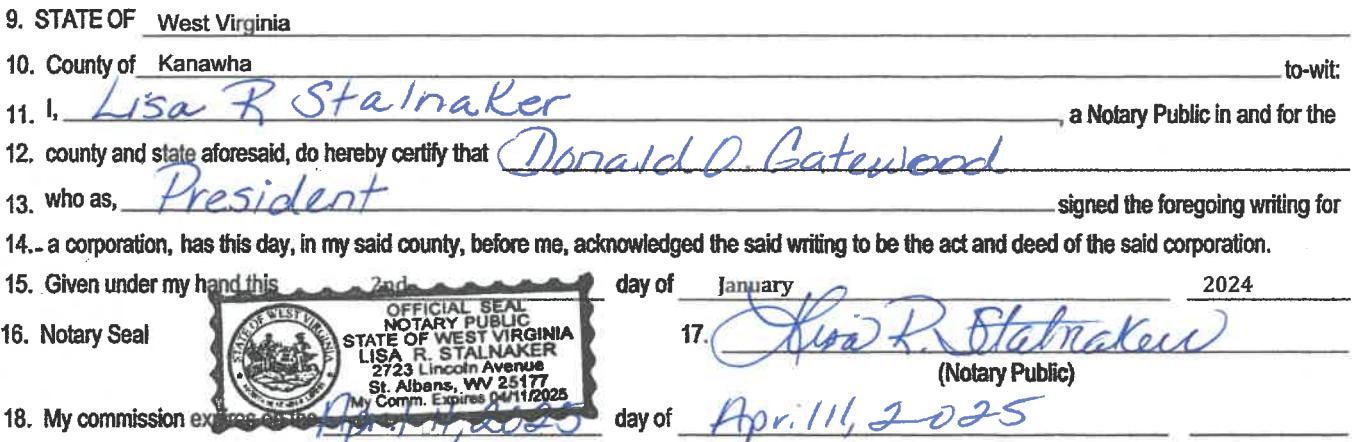 9. STATE OF West Virginia
10. County of Kanawha to-wit:
11. I, Lisa R Stalnaker, a Notary Public in and for the
12. county and state aforesaid, do hereby certify that Donald O. Gatewood
13. who as, President signed the foregoing writing for
14. a corporation, has this day, in my said county, before me, acknowledged the said writing to be the act and deed of the said corporation.
15. Given under my hand this 2nd day of January 2024
OFFICIAL SEAL
NOTARY PUBLIC
STATE OF WEST VIRGINIA
LISA R. STALNAKER
2723 Lincoln Avenue
St. Albans, WV 25177
My Comm. Expires 04/11/2025
STATE OF WEST VIRGINIA
16. Notary Seal 17. Lisa R. Stalnaker
(Notary Public)
18. My commission expires on the April 11, 2025 day of April 11, 2025